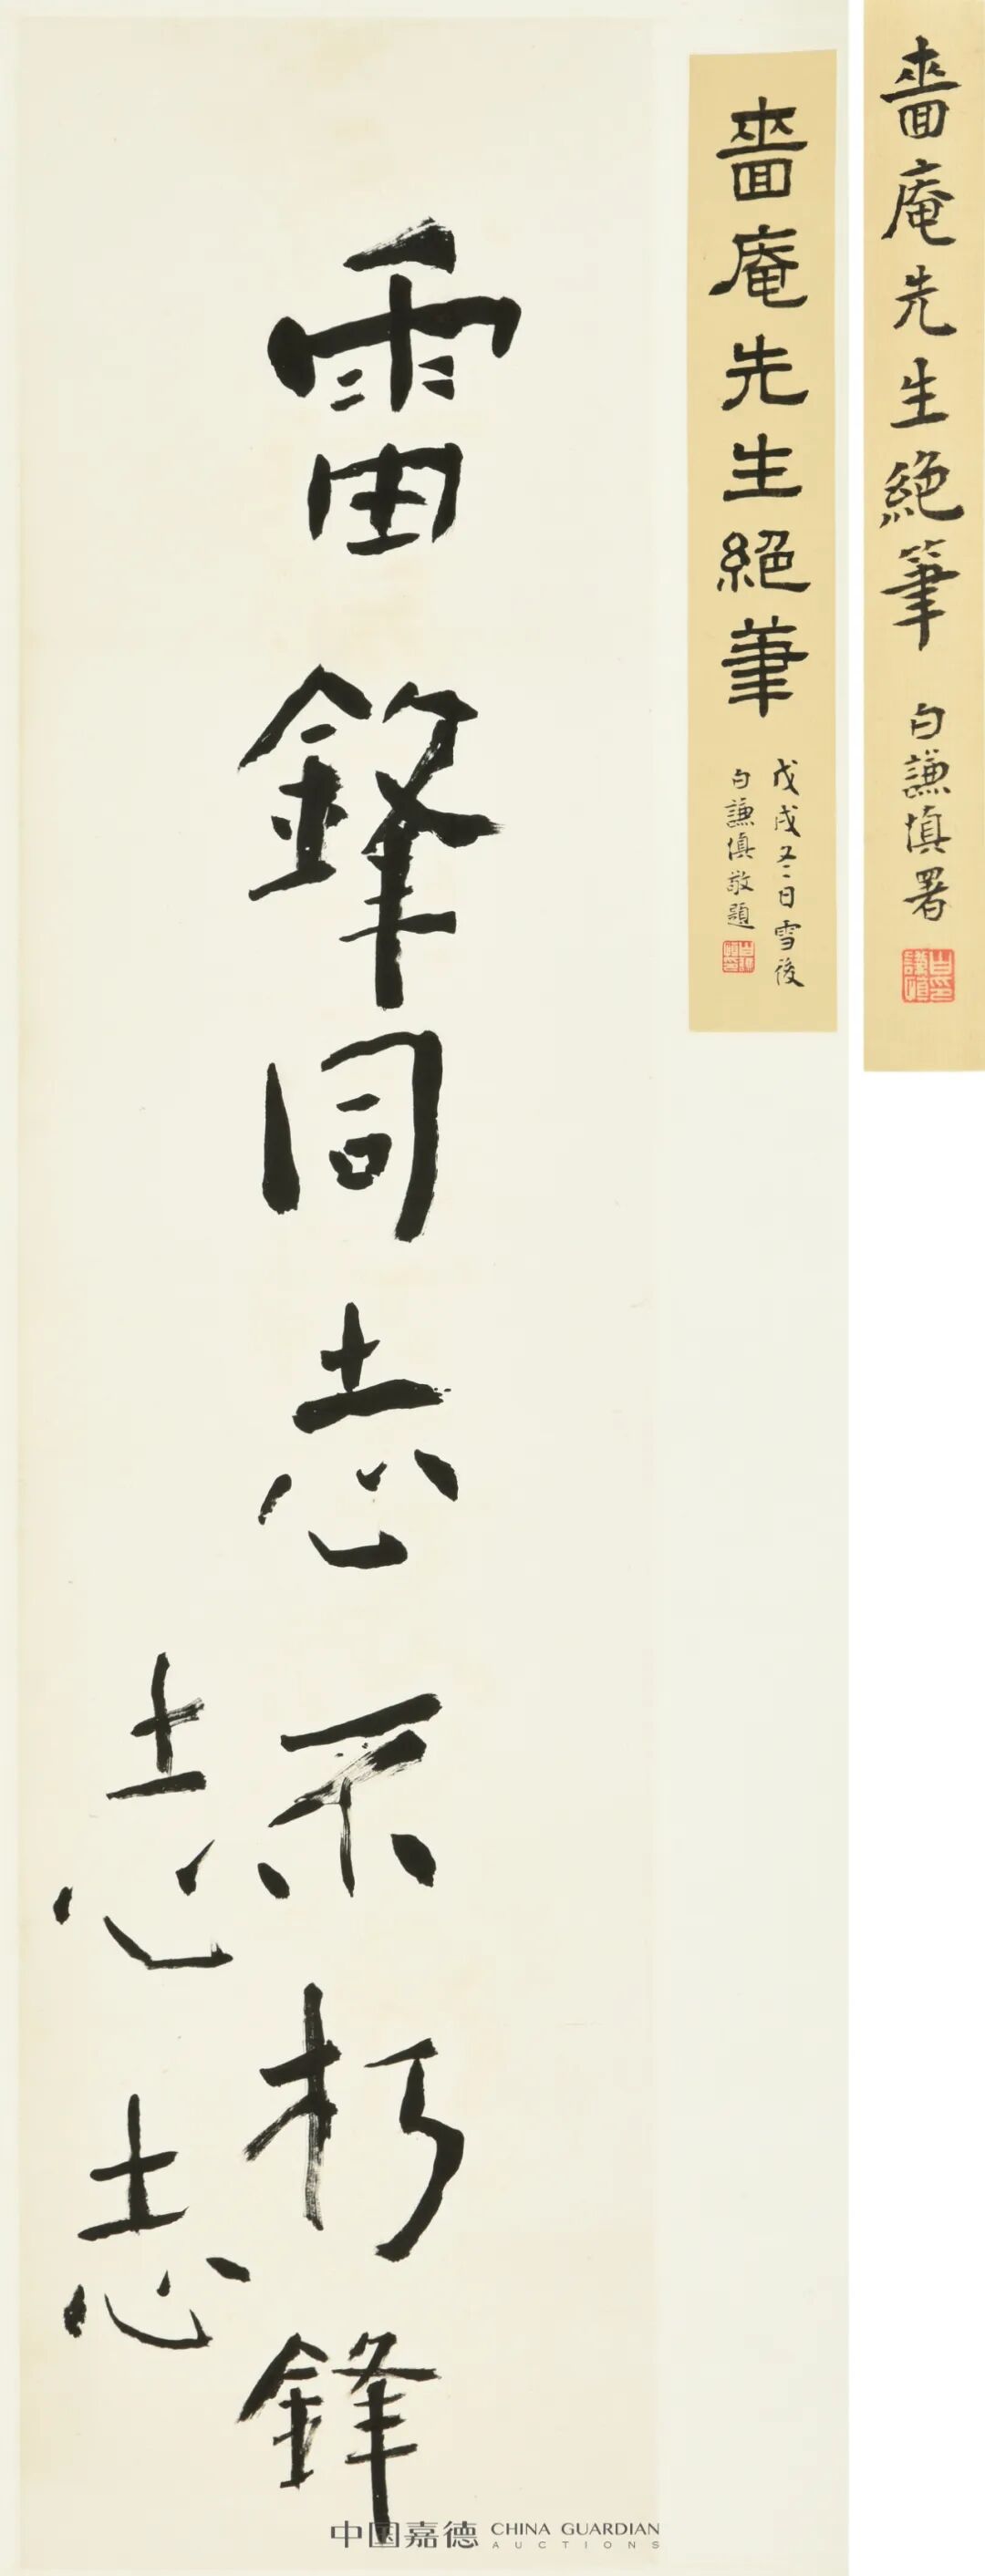 嗇庵先生絕筆
白謙慎署
嗇庵先生絕筆
戊戌冬日雪後
白謙慎敬題
雷鋒同志不朽鋒
志志
中国嘉德 CHINA GUARDIAN
AUCTIONS